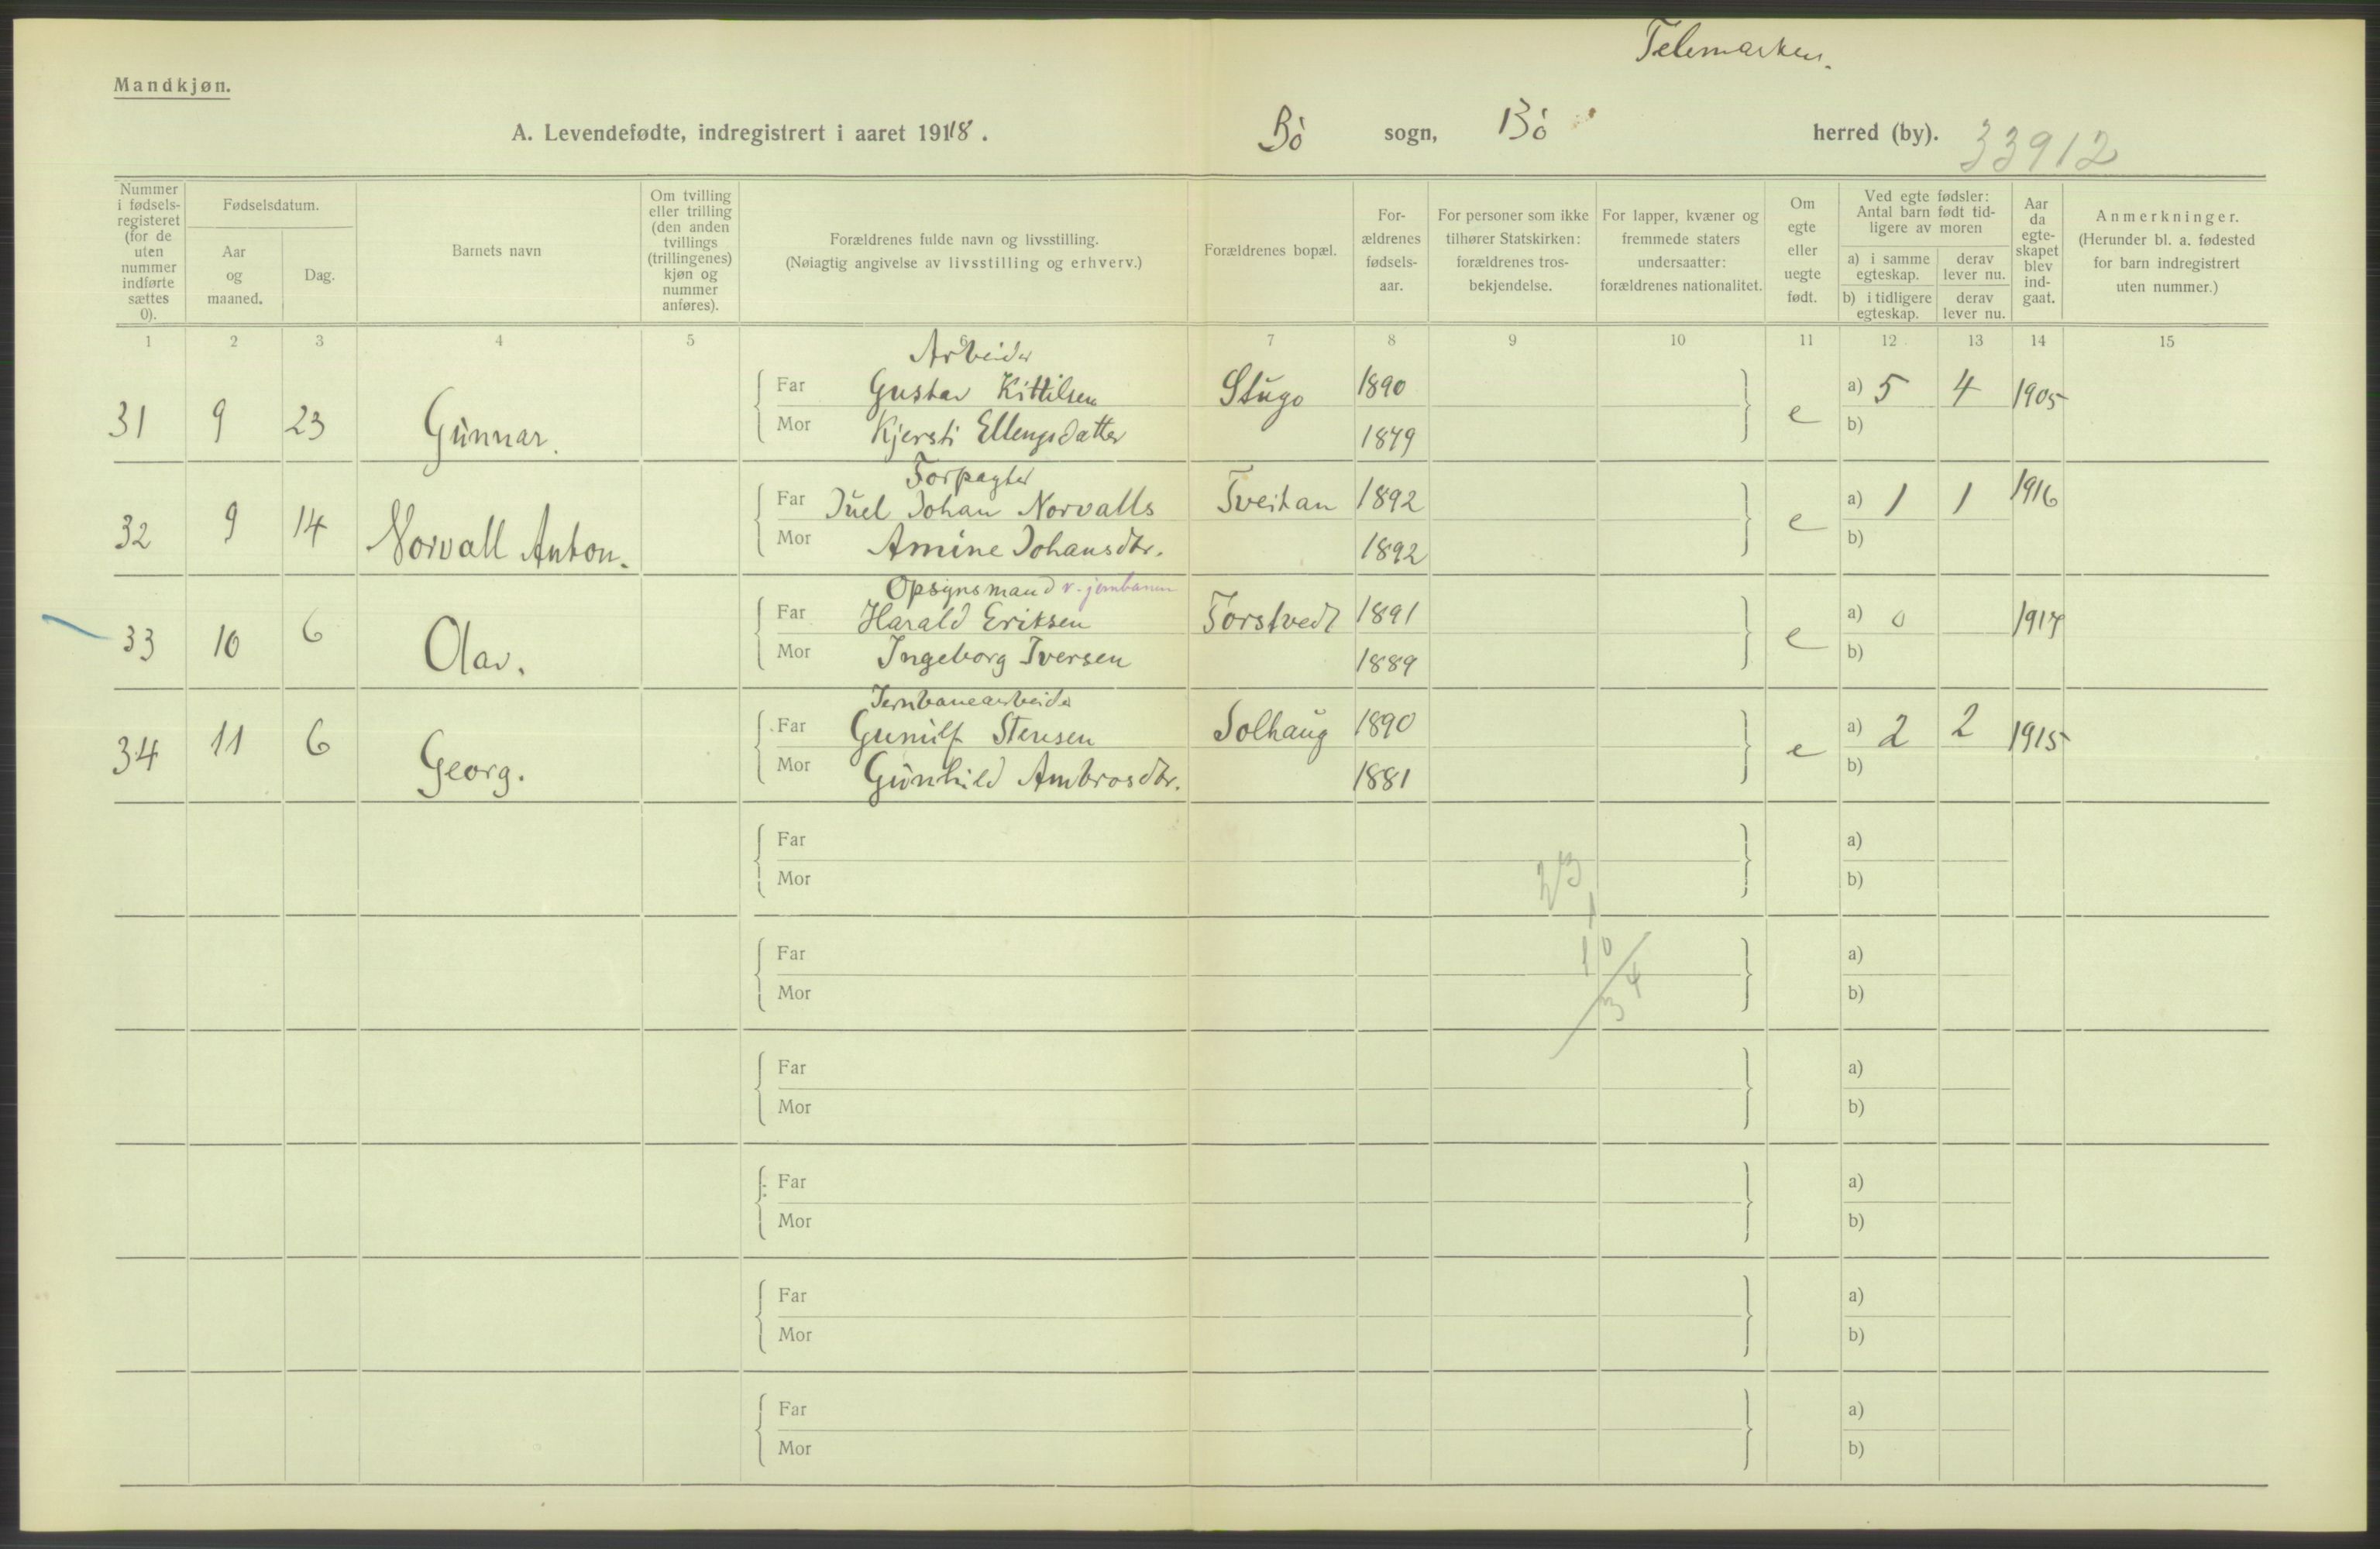 Telemarken.
Mandkjøn.
A. Levendefødte, indregistrert i aaret 1918.
Bö sogn, Bö herred (by). 33912
Nummer i fødsels-registeret (for de uten nummer indførte sættes 0).
Fødselsdatum.
Aar og maaned.
Dag.
Barnets navn
Om tvilling eller trilling (den anden tvillings (trillingenes) kjøn og nummer anføres).
Forældrenes fulde navn og livsstilling.
(Nøiagtig angivelse av livsstilling og erhverv.)
Forældrenes bopæl.
For-ældrenes fødsels-aar.
For personer som ikke tilhører Statskirken: forældrenes tros-bekjendelse.
For lapper, kvæner og fremmede staters undersaatter: forældrenes nationalitet.
Om egte eller uegte født.
Ved egte fødsler: Antal barn født tid-ligere av moren
a) i samme egteskap.
derav lever nu.
b) i tidligere egteskap.
derav lever nu.
Aar da egte-skapet blev ind-gaat.
Anmerkninger.
(Herunder bl. a. fødested for barn indregistrert uten nummer.)
1 2 3 4 5 6 7 8 9 10 11 12 13 14 15
Arbeider
31 9 23 Gunnar. Far Gustav Kittilsen Stugo 1890 e a) 5 4 1905
Mor Kjersti Ellengsdatter 1879 b)
Forpagter
32 9 14 Norvall Anton. Far Juel Johan Norvalls Tveitan 1892 e a) 1 1 1916
Mor Amine Johansdtr. 1892 b)
Opsynsmand v. jernbanen
33 10 6 Olav. Far Harald Eriksen Forstvedt 1891 e a) 0 1917
Mor Ingeborg Iversen 1889 b)
Jernbanearbeider
34 11 6 Georg. Far Gunulf Stensen Solhaug 1890 e a) 2 2 1915
Mor Gunhild Ambrosdtr. 1881 b)
Far a)
Mor b)
23
1
Far a)
10
Mor b)
34
Far a)
Mor b)
Far a)
Mor b)
Far a)
Mor b)
Far a)
Mor b)